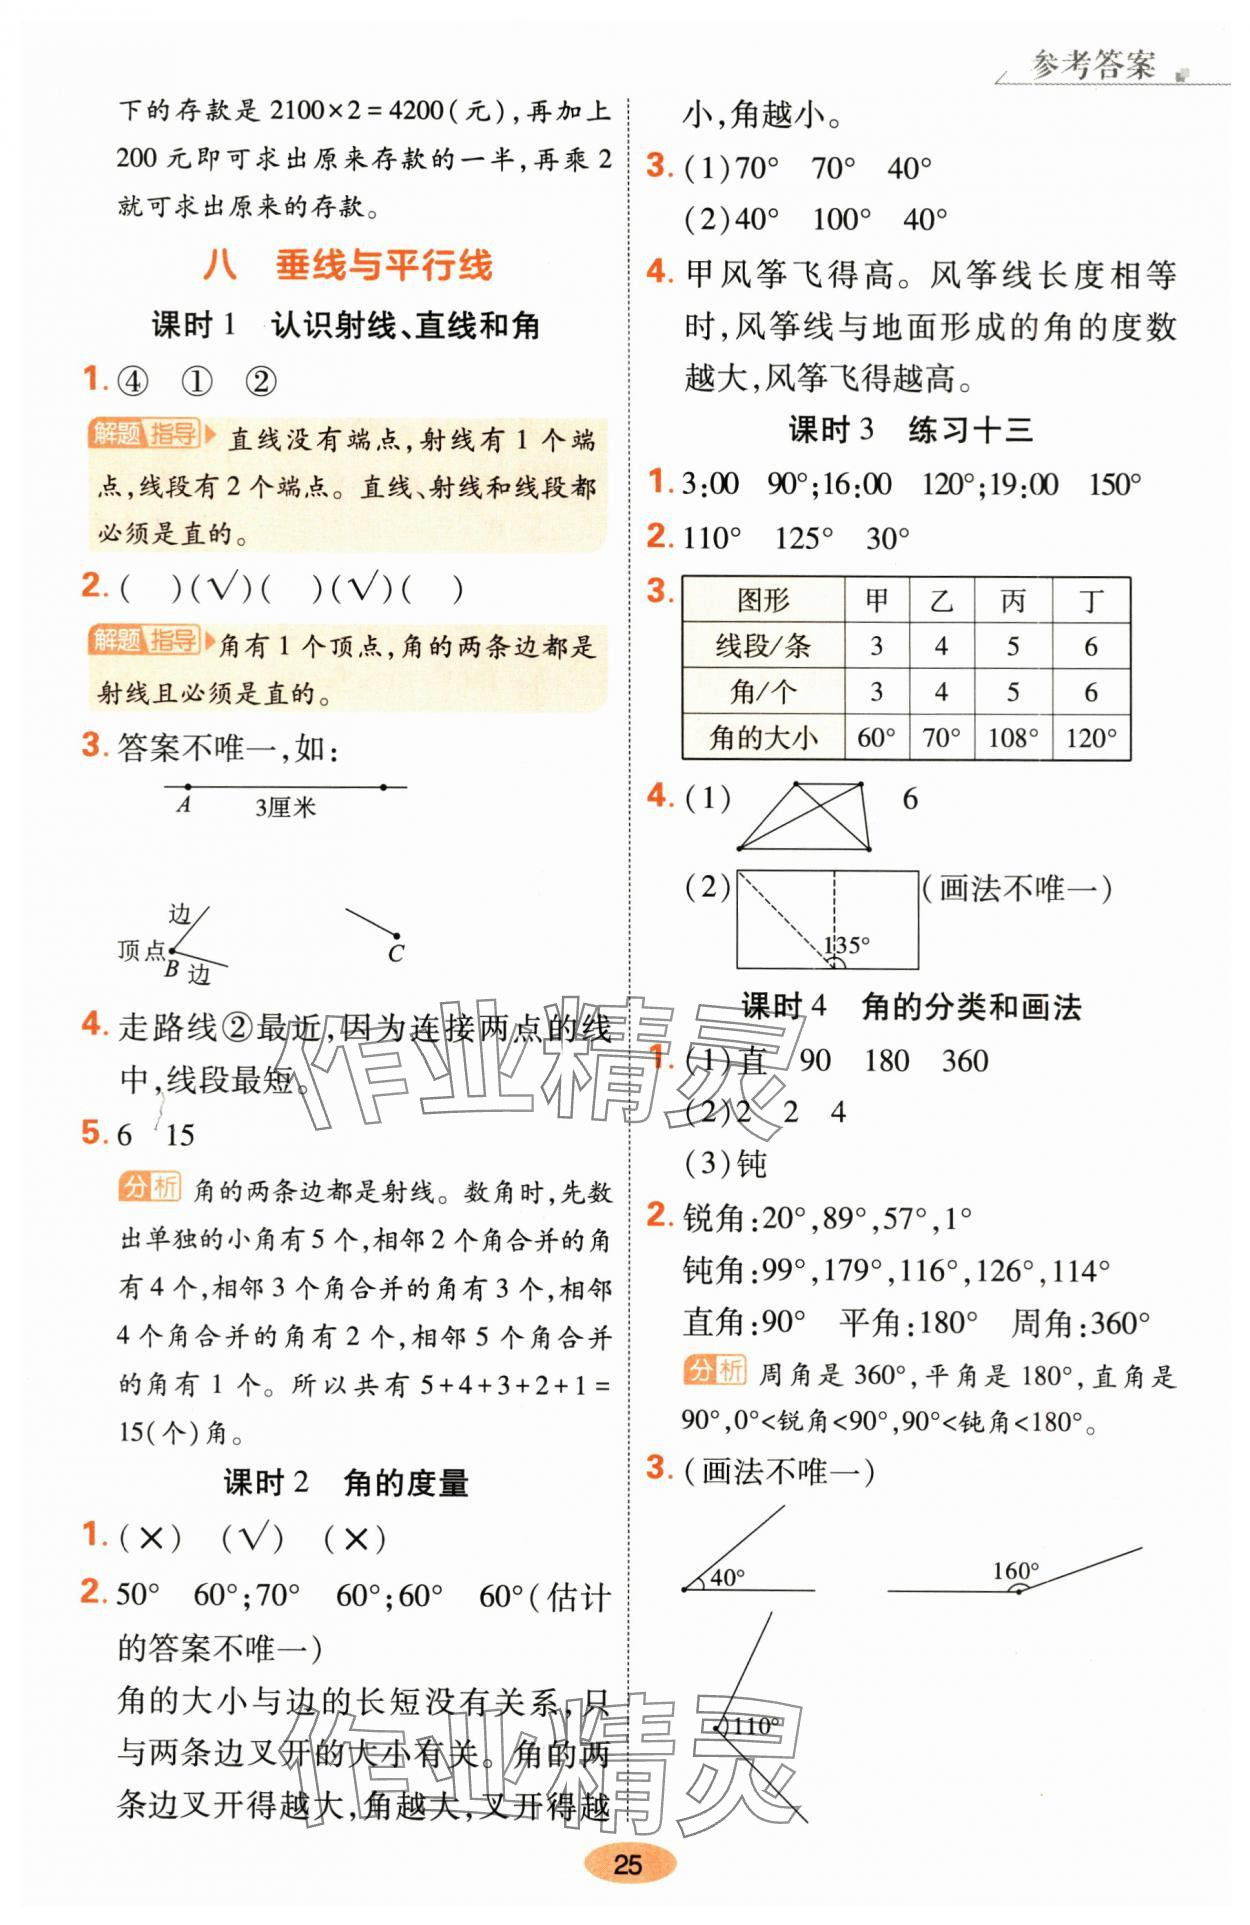 参考答案
下的存款是 2100×2=4200(元),再加上
200 元即可求出原来存款的一半,再乘 2
就可求出原来的存款。
八 垂线与平行线
课时 1 认识射线、直线和角
1. ④ ① ②
解题指导 直线没有端点,射线有 1 个端
点,线段有 2 个端点。直线、射线和线段都
必须是直的。
2. ( )(√)( )(√)( )
解题指导 角有 1 个顶点,角的两条边都是
射线且必须是直的。
3. 答案不唯一,如:
A 3厘米
边
顶点 B 边 C
4. 走路线②最近,因为连接两点的线
中,线段最短。
5. 6 15
分析 角的两条边都是射线。数角时,先数
出单独的小角有 5 个,相邻 2 个角合并的角
有 4 个,相邻 3 个角合并的角有 3 个,相邻
4 个角合并的角有 2 个,相邻 5 个角合并
的角有 1 个。所以共有 5+4+3+2+1=
15(个)角。
课时 2 角的度量
1. (×) (√) (×)
2. 50° 60°;70° 60°;60° 60°(估计
的答案不唯一)
角的大小与边的长短没有关系,只
与两条边叉开的大小有关。角的两
条边叉开得越大,角越大,叉开得越
小,角越小。
3. (1)70° 70° 40°
(2)40° 100° 40°
4. 甲风筝飞得高。风筝线长度相等
时,风筝线与地面形成的角的度数
越大,风筝飞得越高。
课时 3 练习十三
1. 3:00 90°;16:00 120°;19:00 150°
2. 110° 125° 30°
3. 图形 甲 乙 丙 丁
线段/条 3 4 5 6
角/个 3 4 5 6
角的大小 60° 70° 108° 120°
4. (1) 6
(2) (画法不唯一)
135°
课时 4 角的分类和画法
1. (1)直 90 180 360
(2)2 2 4
(3)钝
2. 锐角:20°,89°,57°,1°
钝角:99°,179°,116°,126°,114°
直角:90° 平角:180° 周角:360°
分析 周角是 360°,平角是 180°,直角是
90°,0°<锐角<90°,90°<钝角<180°。
3. (画法不唯一)
40° 160°
110°
25
作业精灵
作业精灵